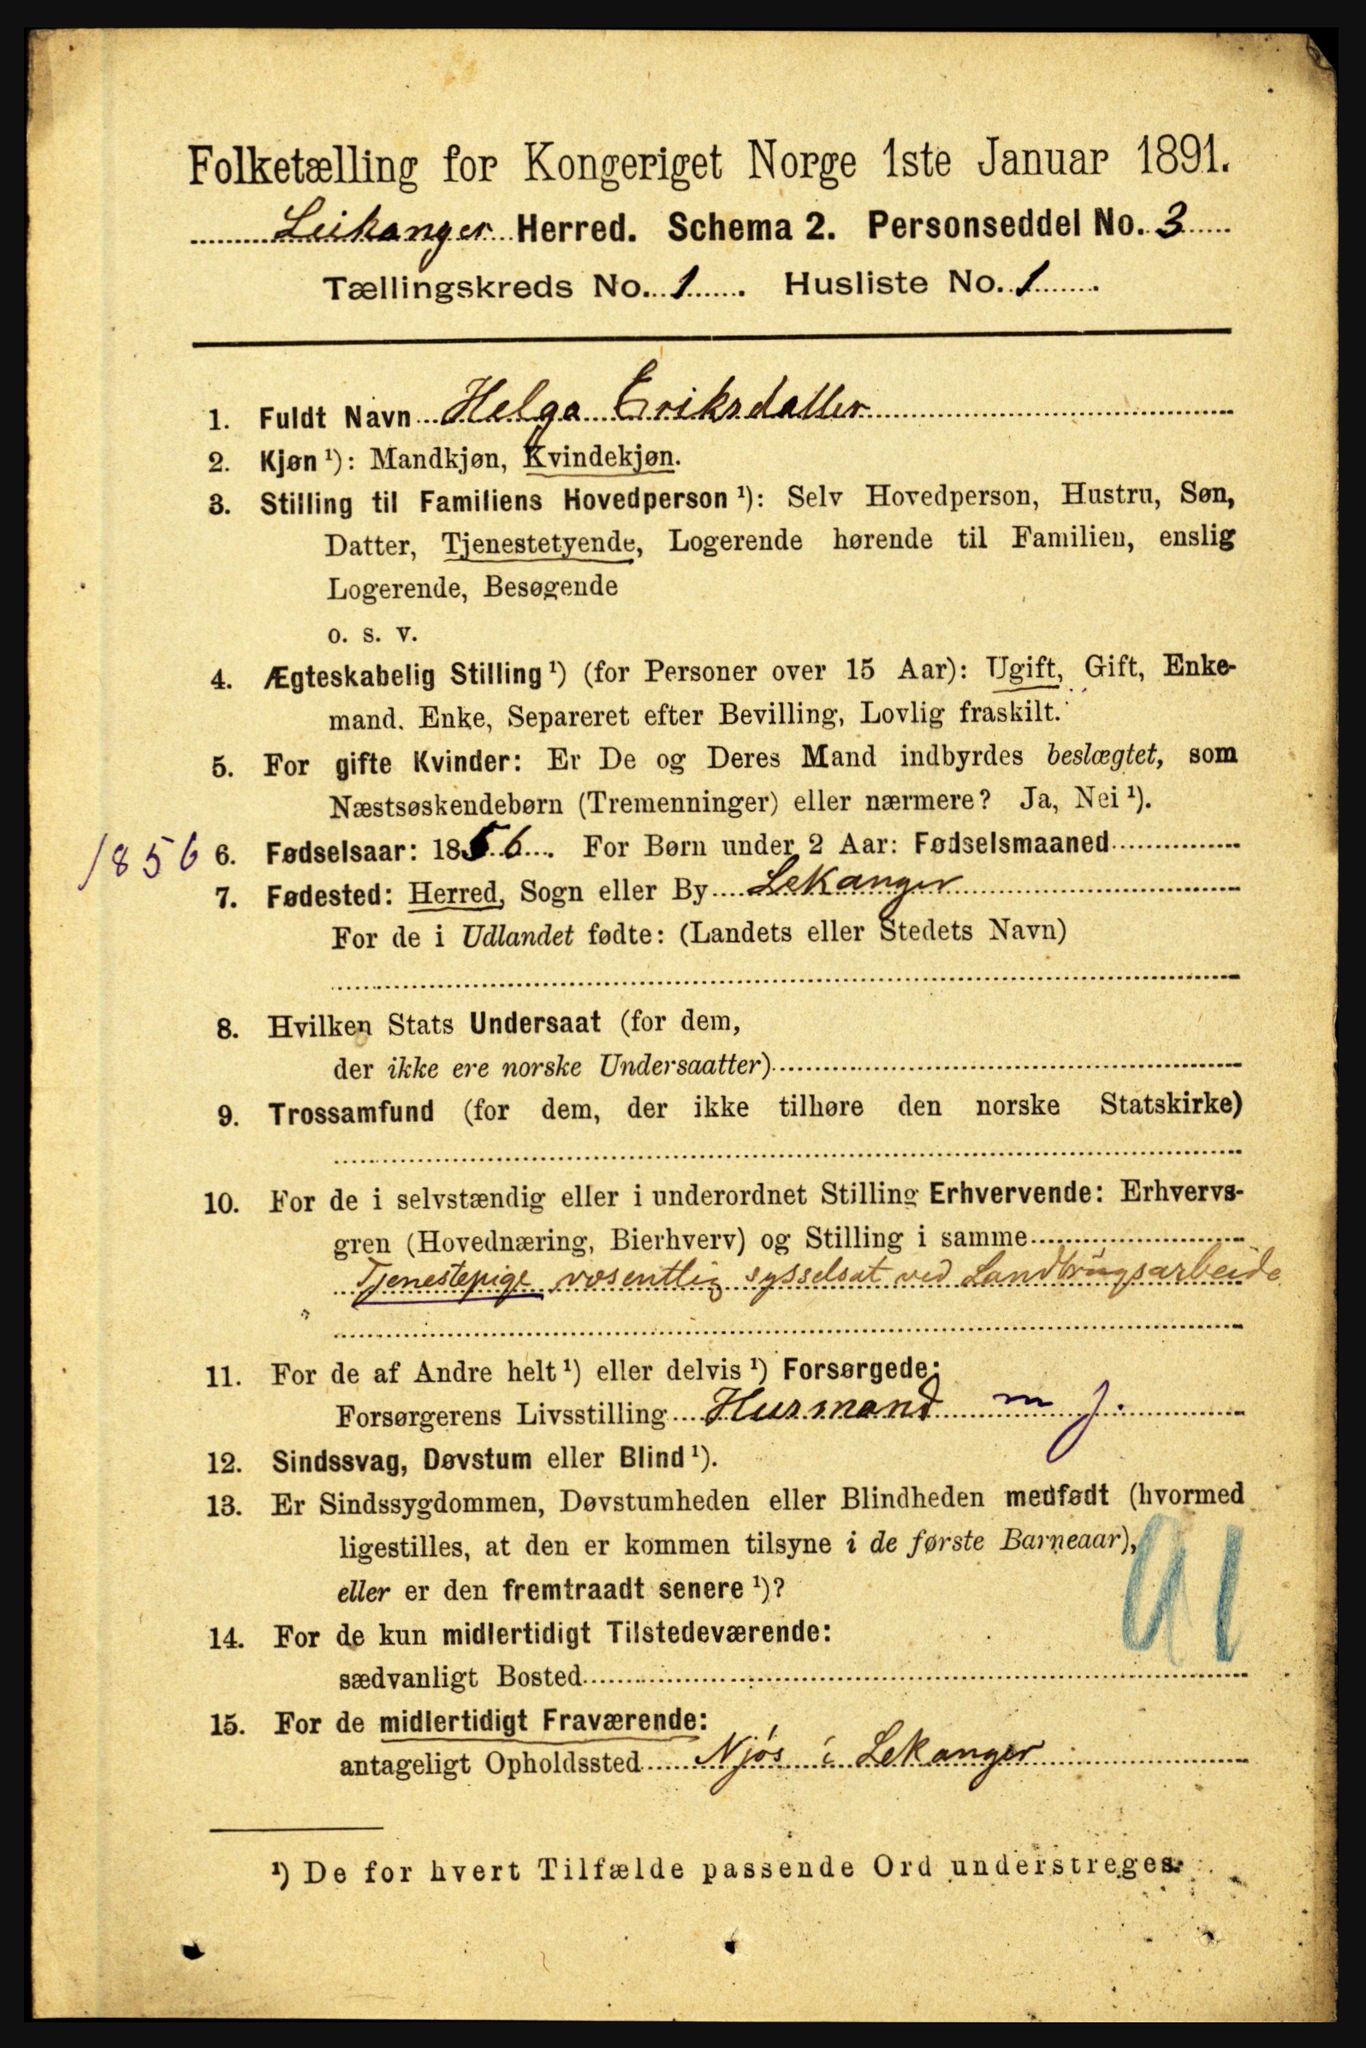 Folketælling for Kongeriget Norge 1ste Januar 1891.
Leikanger Herred. Schema 2. Personseddel No. 3
Tællingskreds No. 1. Husliste No. 1.
1. Fuldt Navn Helga Eriksdatter
2. Kjøn ¹): Mandkjøn, Kvindekjøn.
3. Stilling til Familiens Hovedperson ¹): Selv Hovedperson, Hustru, Søn,
Datter, Tjenestetyende, Logerende hørende til Familien, enslig
Logerende, Besøgende
o. s. v.
4. Ægteskabelig Stilling ¹) (for Personer over 15 Aar): Ugift, Gift, Enke-
mand. Enke, Separeret efter Bevilling, Lovlig fraskilt.
5. For gifte Kvinder: Er De og Deres Mand indbyrdes beslægtet, som
Næstsøskendebørn (Tremenninger) eller nærmere? Ja, Nei ¹).
1856 6. Fødselsaar: 1856. For Børn under 2 Aar: Fødselsmaaned
7. Fødested: Herred, Sogn eller By Lekanger
For de i Udlandet fødte: (Landets eller Stedets Navn)
8. Hvilken Stats Undersaat (for dem,
der ikke ere norske Undersaatter)
9. Trossamfund (for dem, der ikke tilhøre den norske Statskirke)
10. For de i selvstændig eller i underordnet Stilling Erhvervende: Erhvervs-
gren (Hovednæring, Bierhverv) og Stilling i samme
Tjenestepige væsentlig sysselsat ved Landbrugsarbeide
11. For de af Andre helt ¹) eller delvis ¹) Forsørgede:
Forsørgerens Livsstilling Husmand m j.
12. Sindssvag, Døvstum eller Blind ¹).
13. Er Sindssygdommen, Døvstumheden eller Blindheden medfødt (hvormed
ligestilles, at den er kommen tilsyne i de første Barneaar),
eller er den fremtraadt senere ¹)?
91
14. For de kun midlertidigt Tilstedeværende:
sædvanligt Bosted
15. For de midlertidigt Fraværende:
antageligt Opholdssted Njøs i Lekanger
¹) De for hvert Tilfælde passende Ord understreges.